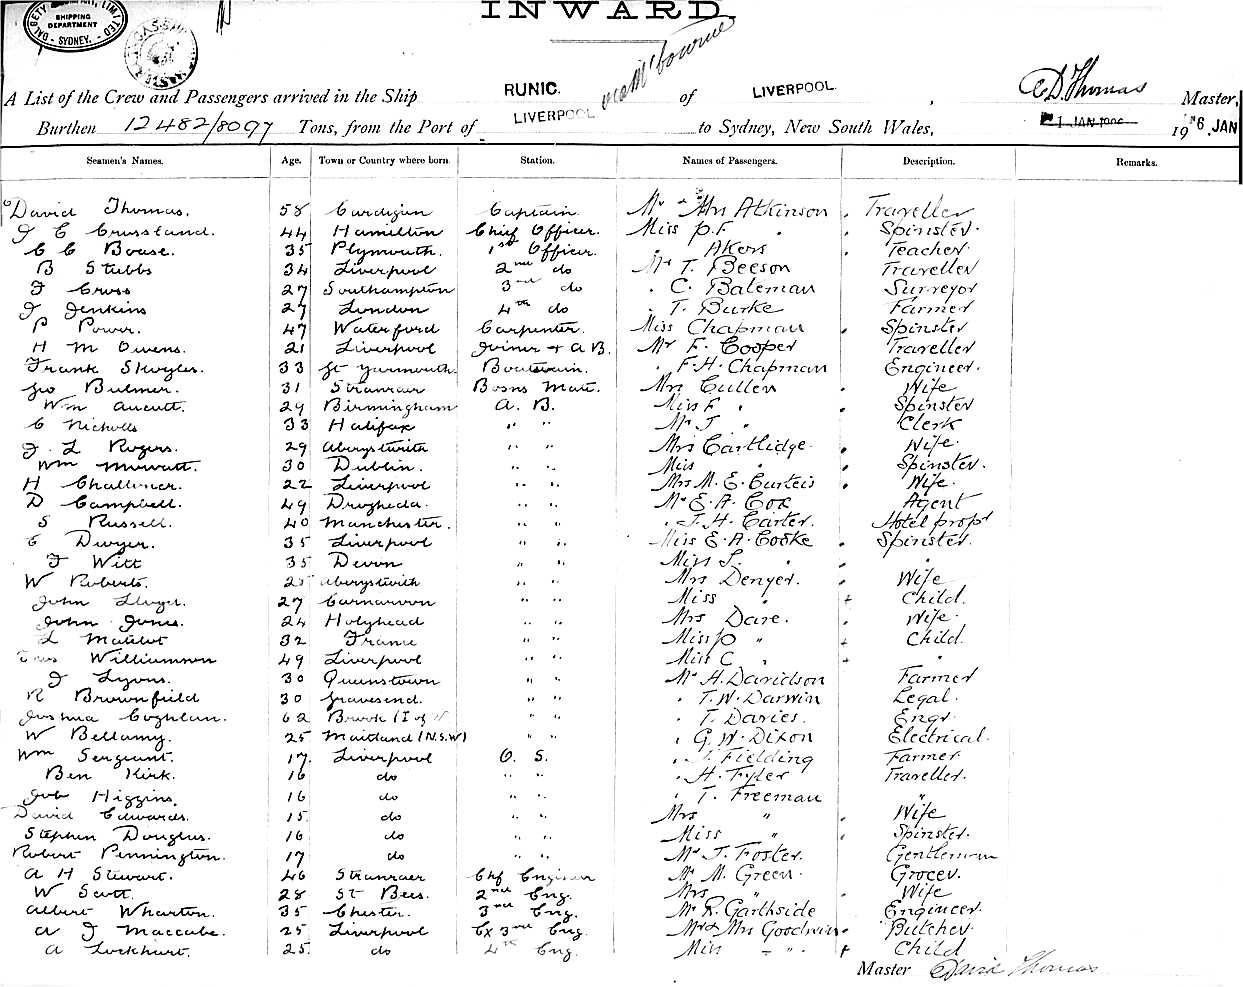 DALGETY & COMPANY, LIMITED
SHIPPING DEPARTMENT
SYDNEY.
INWARD.
via M'bourne
A List of the Crew and Passengers arrived in the Ship RUNIC. of LIVERPOOL. D. Thomas Master,
Burthen 12482/8097 Tons, from the Port of LIVERPOOL to Sydney, New South Wales, 1 JAN 19 6. JAN
Seamen's Names. Age. Town or Country where born Station. Names of Passengers. Description. Remarks.
David Thomas. 58 Cardigan Captain. Mr & Mrs Atkinson Traveller
J E Crossland. 44 Hamilton Chief Officer. Miss P.F " Spinster.
C C Bouse. 35 Plymouth. 1st Officer. " Akers Teacher
B Stubbs 34 Liverpool 2nd do Mr T. Beeson Traveller
J Cross 27 Southampton 3rd do " C. Bateman Surveyor
J Jenkins 27 London 4th do " T. Burke Farmer
P Power. 47 Waterford Carpenter. Miss Chapman Spinster
H M Owens. 21 Liverpool Joiner & A B. Mr F. Cooper Traveller
Frank Skoyles. 33 Gt Yarmouth. Boatswain. " F.H. Chapman Engineer.
Geo Bulmer. 31 Stranraer Bosns Mate. Mrs Cullen Wife
Wm Aucutt. 29 Birmingham A. B. Miss F " Spinster
C Nicholls 33 Halifax " " Mr J " Clerk
J. L Rogers. 29 Aberystwith " " Mrs Cartlidge. Wife.
Wm 30 Dublin. " " Miss " Spinster.
H Challinor. 22 Liverpool " " Mrs M. E. Curteis Wife.
D Campbell. 49 Drogheda. " " Mr E. A. Cox Agent
S Russell. 40 Manchester. " " " J. H. Carter. Hotel propr
E Dwyer. 35 Liverpool " " Miss E. A. Cooke Spinster.
J Witt 35 Devon " " Miss S. " "
W Roberts. 25 Aberystwith " " Mrs Denyer. Wife
John 27 Carnarvon " " Miss " Child.
John Jones. 24 Holyhead " " Mrs Dare. Wife.
L 32 France " " Miss O " Child.
Williamson 49 Liverpool " " Miss C " "
J Lyons. 30 Queenstown " " Mr H. Davidson Farmer
R Brownfield 30 Gravesend. " " " T. W. Darwin Legal.
Joshua Coghlan. 62 (I of " " " T. Davies. Engr.
W Bellamy. 25 Maitland (N.S.W) " " " G. W. Dixon Electrical.
Wm Sergeant. 17. Liverpool O. S. " J. Fielding Farmer
Ben Kirk. 16 do " " " H. Fyler Traveller.
Job Higgins. 16 do " " " T. Freeman "
David Edwards. 15. do " " Mrs " Wife
Stephen Douglas. 16 do " " Miss " Spinster.
Robert Pennington. 17 do " " Mr J. Foster. Gentleman
A H Stewart. 46 Stranraer Chf Engineer Mr M. Green. Grocer.
W Scott. 28 St Bees. 2nd Eng. Mrs " Wife
Albert Wharton. 35 Chester. 3rd Eng. Mr R. Garthside Engineer.
A J Maccabe. 25 Liverpool Ex 3rd Eng. Mr & Mrs Goodwin Butcher
A Lockhart. 25. do 4th Eng. Miss " Child
Master David Thomas